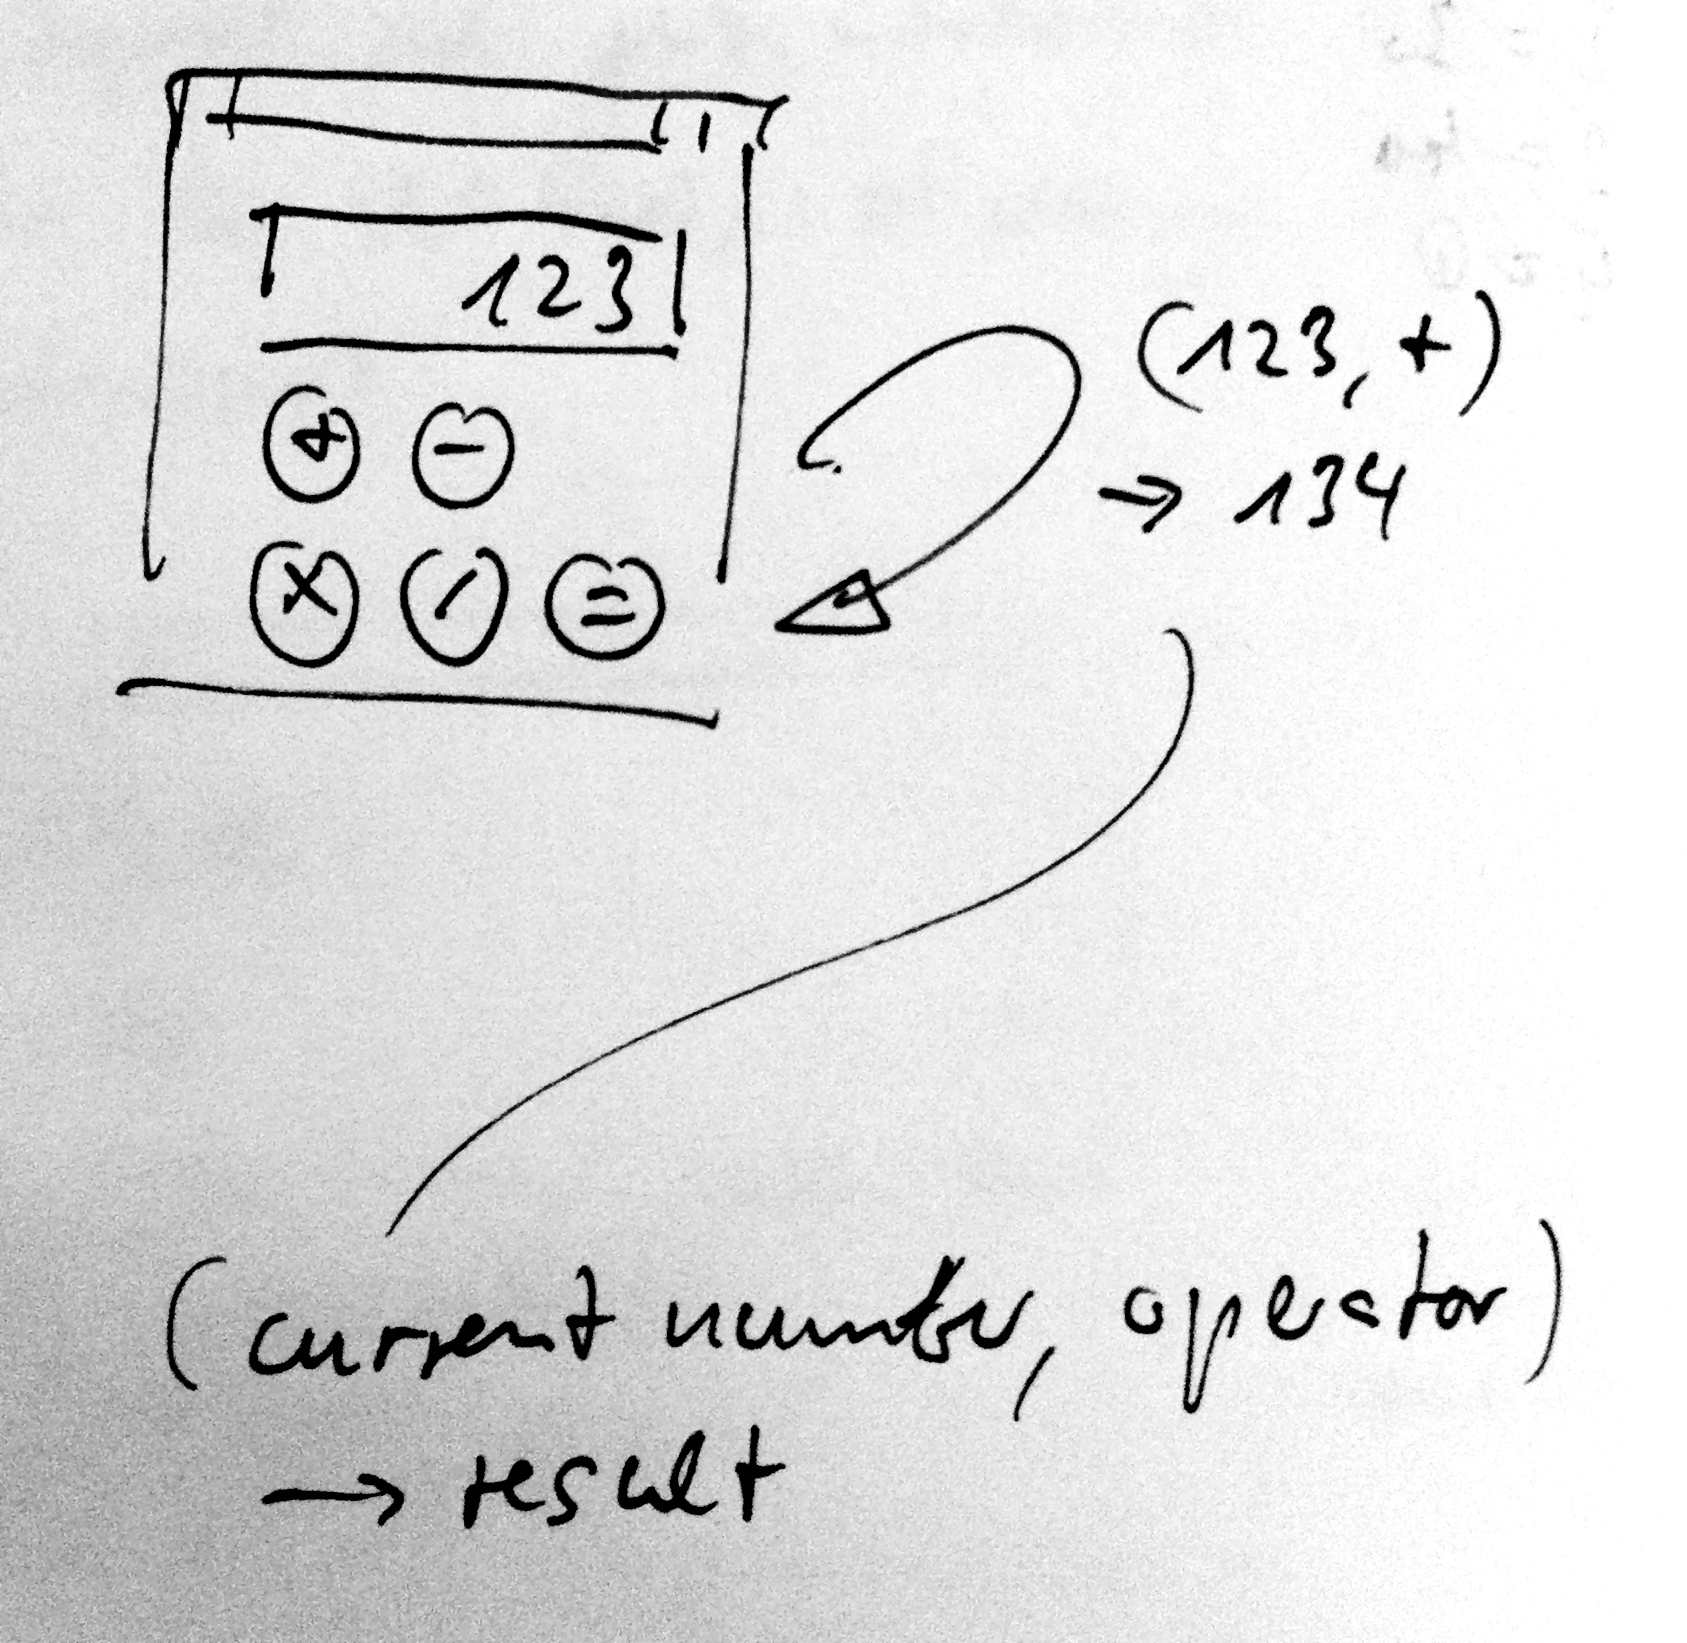 123
+ -
× / =
(123, +)
→ 134
(current number, operator)
→ result